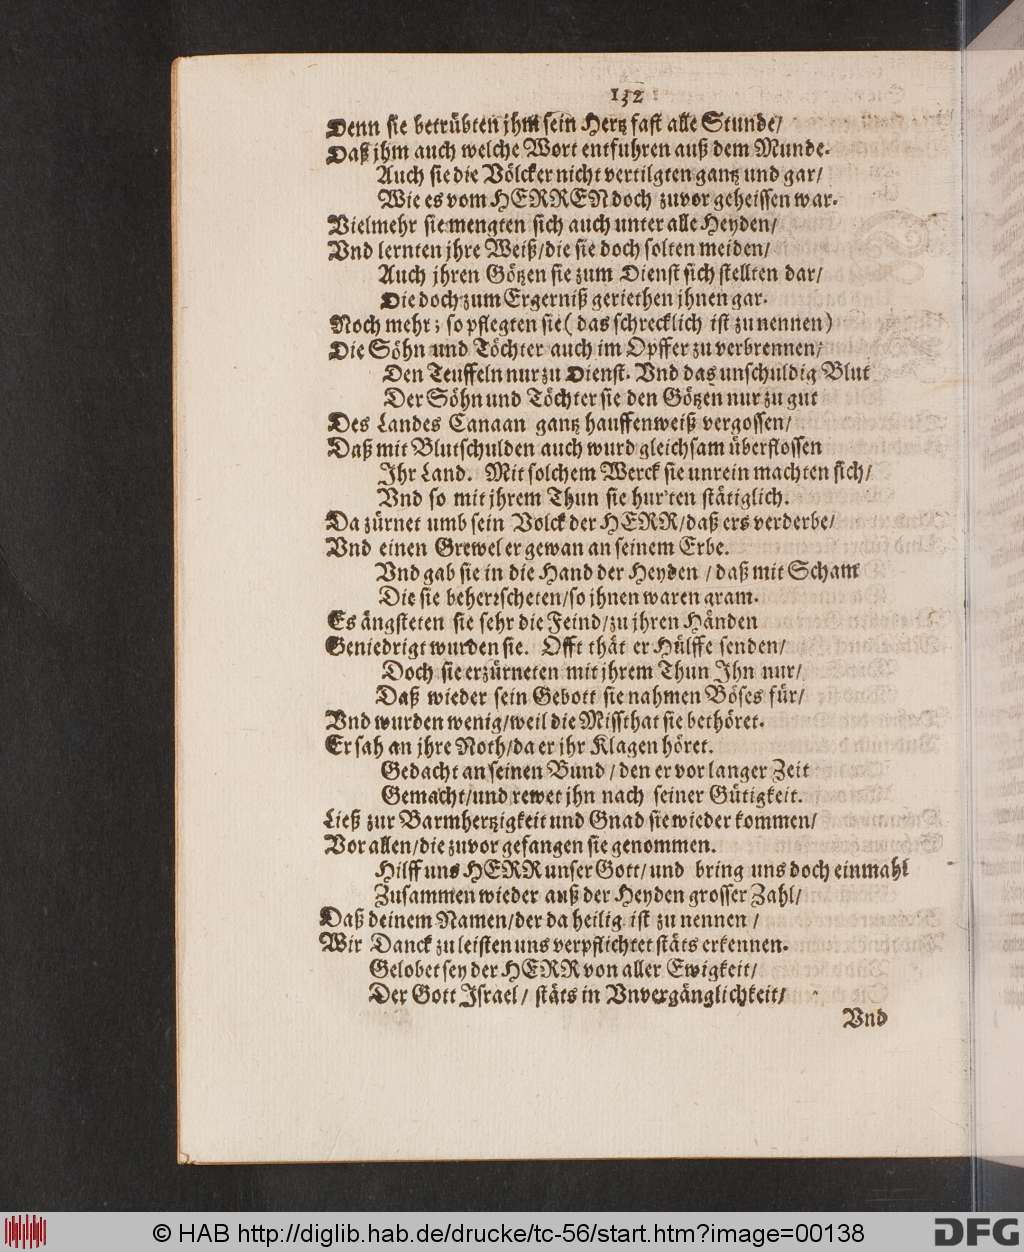 132
Denn sie betrübten jhm sein Hertz fast alle Stunde/
Daß jhm auch welche Wort entfuhren auß dem Munde.
Auch sie die Völcker nicht vertilgten gantz und gar/
Wie es vom HERREN doch zuvor geheissen war.
Vielmehr sie mengten sich auch unter alle Heyden/
Vnd lernten jhre Weiß/die sie doch solten meiden/
Auch jhren Götzen sie zum Dienst sich stellten dar/
Die doch zum Ergerniß geriethen jhnen gar.
Noch mehr; so pflegten sie (das schrecklich ist zu nennen)
Die Söhn und Töchter auch im Opffer zu verbrennen/
Den Teuffeln nur zu Dienst. Vnd das unschuldig Blut
Der Söhn und Töchter sie den Götzen nur zu gut
Des Landes Canaan gantz hauffenweiß vergossen/
Daß mit Blutschulden auch wurd gleichsam überflossen
Ihr Land. Mit solchem Werck sie unrein machten sich/
Vnd so mit jhrem Thun sie hur'ten stätiglich.
Da zürnet umb sein Volck der HERR/daß ers verderbe/
Vnd einen Grewel er gewan an seinem Erbe.
Vnd gab sie in die Hand der Heyden / daß mit Scham
Die sie beherrscheten/so jhnen waren gram.
Es ängsteten sie sehr die Feind/zu jhren Händen
Geniedrigt wurden sie. Offt thät er Hülffe senden/
Doch sie erzürneten mit jhrem Thun Ihn nur/
Daß wieder sein Gebott sie nahmen Böses für/
Vnd wurden wenig/weil die Missthat sie bethöret.
Er sah an jhre Noth/da er jhr Klagen höret.
Gedacht an seinen Bund / den er vor langer Zeit
Gemacht/und rewet jhn nach seiner Gütigkeit.
Ließ zur Barmhertzigkeit und Gnad sie wieder kommen/
Vor allen/die zuvor gefangen sie genommen.
Hilff uns HERR unser Gott/und bring uns doch einmahl
Zusammen wieder auß der Heyden grosser Zahl/
Daß deinem Namen/der da heilig ist zu nennen /
Wir Danck zu leisten uns verpflichtet stäts erkennen.
Gelobet sey der HERR von aller Ewigkeit/
Der Gott Israel / stäts in Vnvergänglichkeit/
Vnd
© HAB http://diglib.hab.de/drucke/tc-56/start.htm?image=00138
DFG